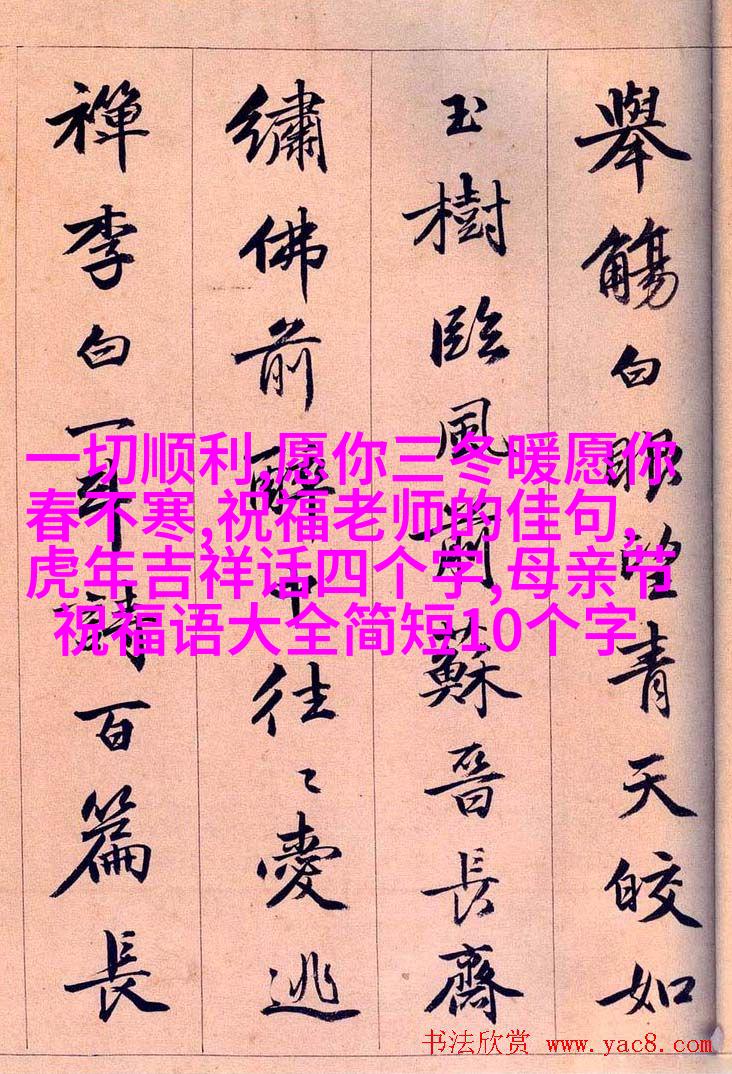 舉觴白眼望青天皎如
玉樹臨風前蘇晉長齋
繡佛前醉中往〻愛逃
禪李白一斗詩百篇長
一切顺利,愿你三冬暖愿你
春不寒,祝福老师的佳句,
虎年吉祥话四个字,母亲节
祝福语大全简短10个字
书法欣赏 www.yac8.com